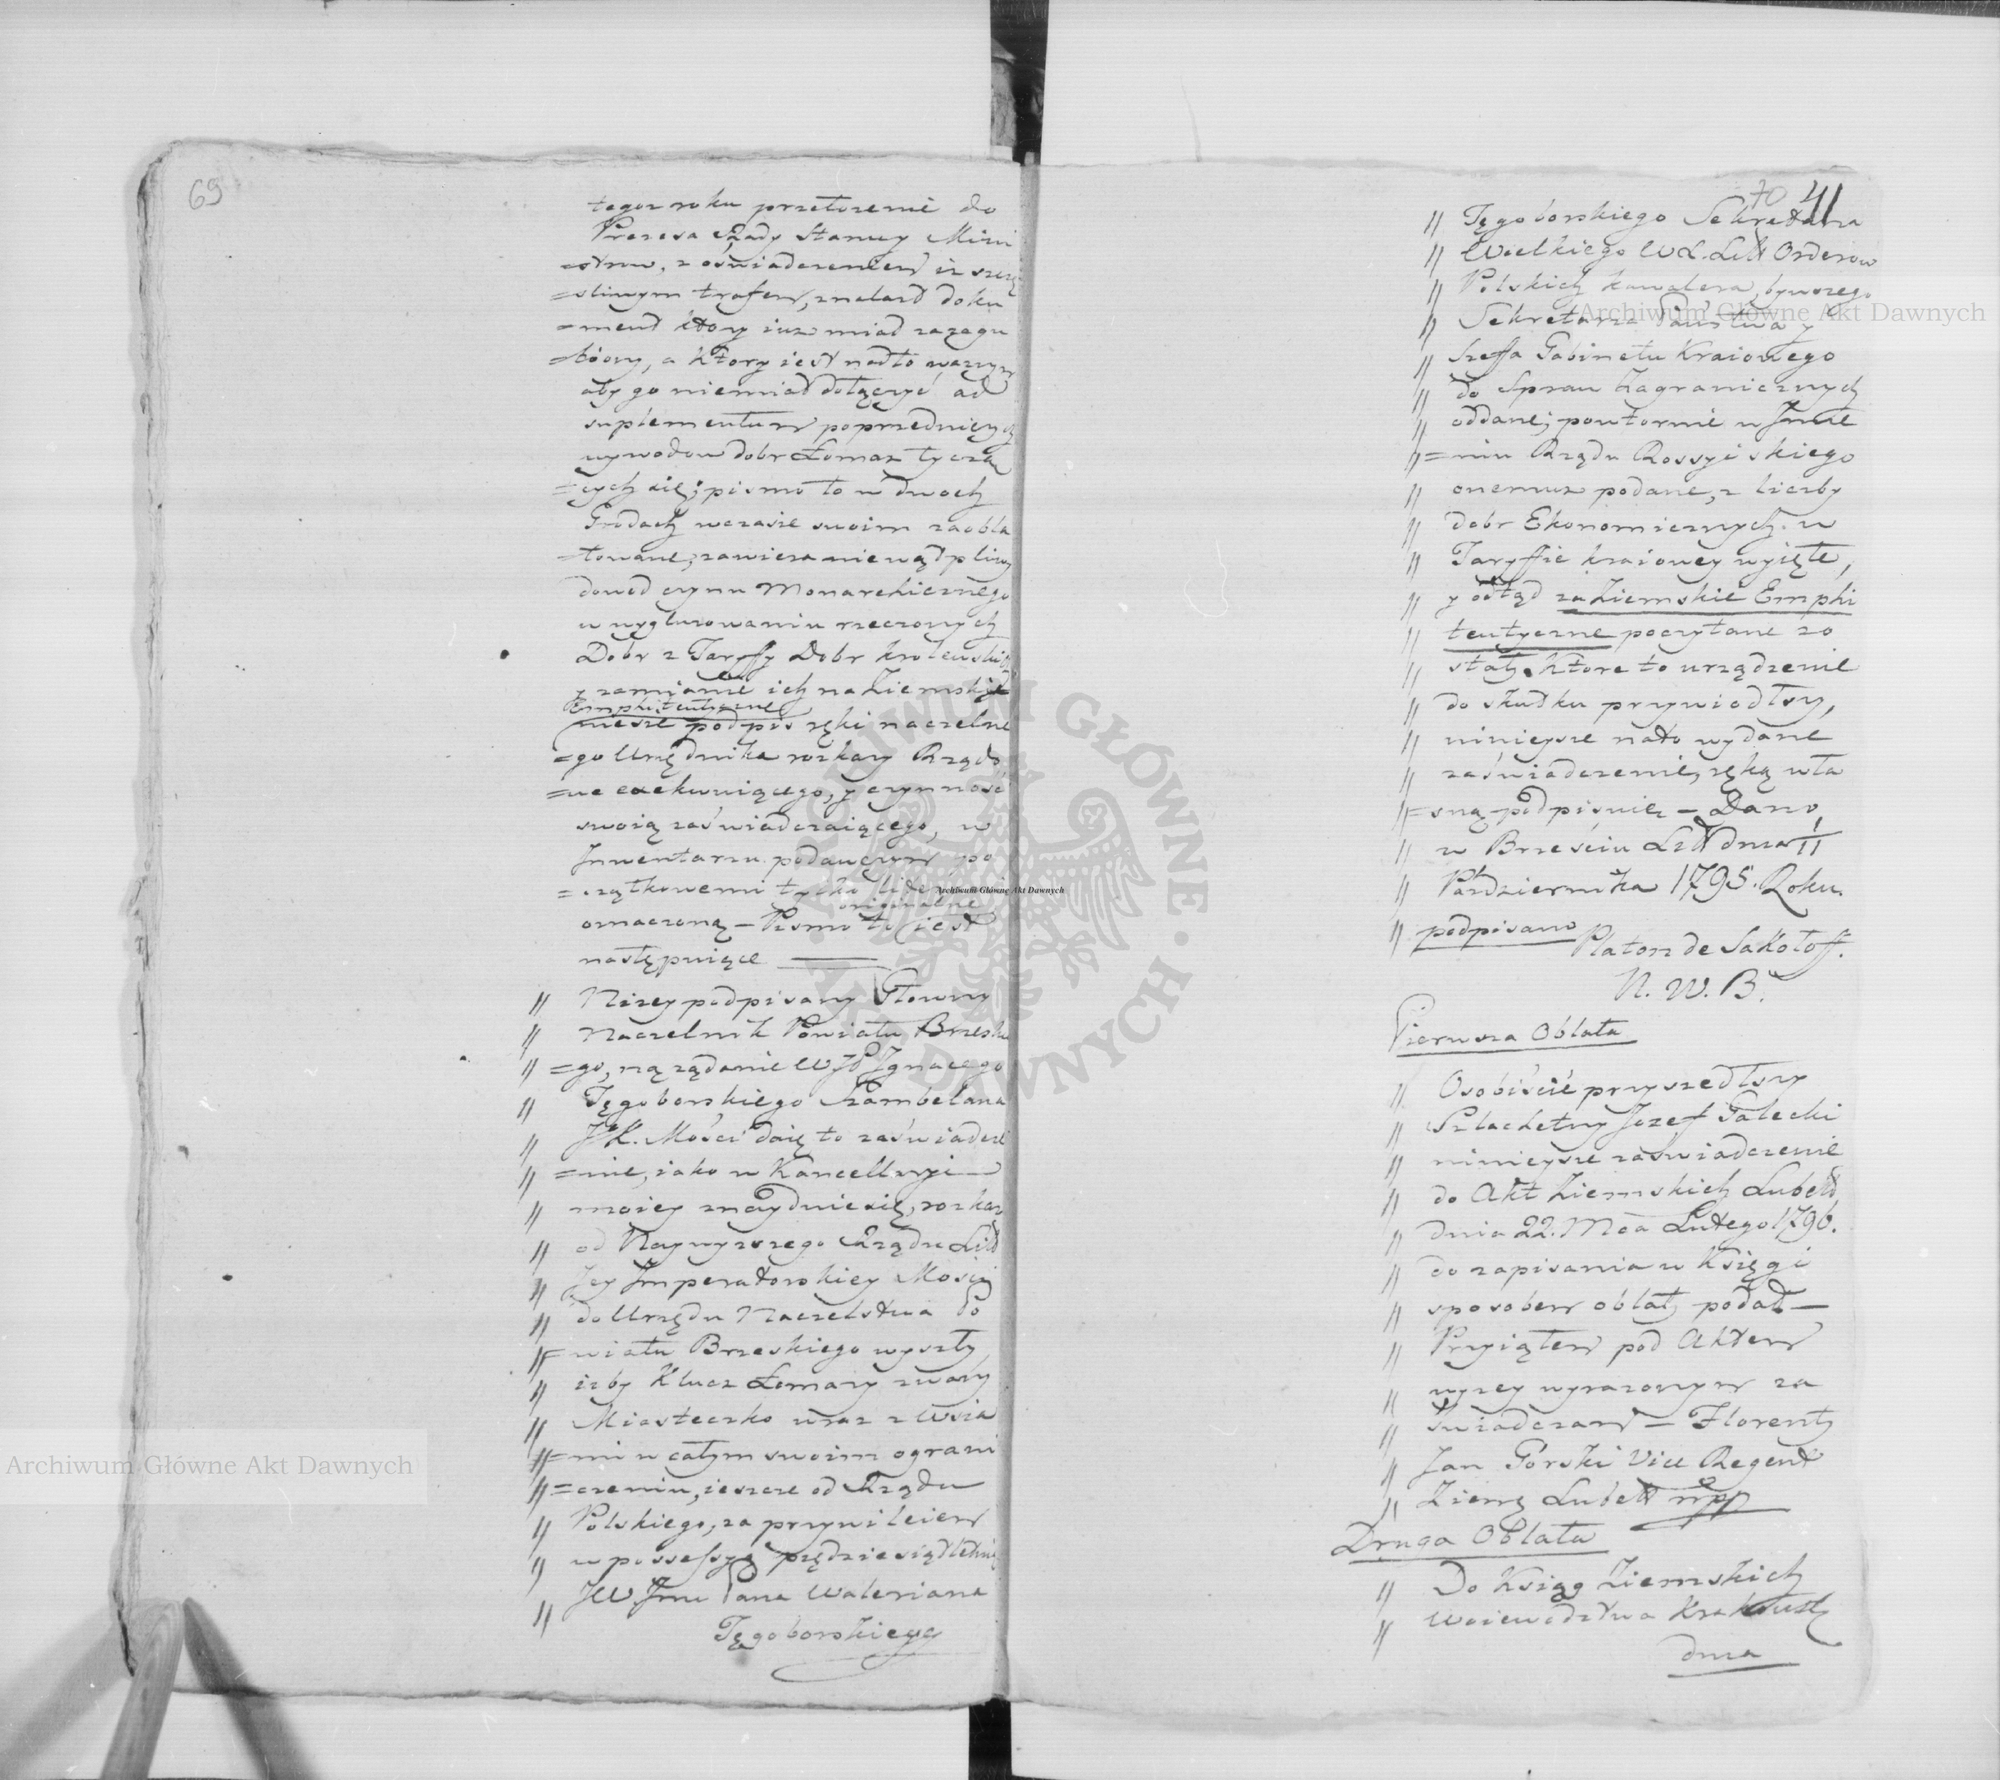 69
tegoz roku przełożenie do
Prezesa Rady Stanu y Mini
=strow, z oświadczeniem iż szczę
=śliwym trafem, znalazł doku
=ment ktory iuz miał za zagu
=biony, a ktory iest nadto ważny
aby go niemiał dołączyć ad
suplementum poprzedniczych
wywodow dobr Łomaz tyczą
=cych się; pismo to w dwoch
Grodach w czasie swoim zaobla
=towane, zawiera niewątpliwy
dowod czynu Monarchicznego
w wygluzowaniu rzeczonych
Dobr z Taryffy Dobr krolewskich
y zamianie ich na Ziemskie
Emphiteutyczne
niesie podpis ręki naczelne
=go Urzędnika rozkazy Rządo
=we exekwuiącego, y czynność
swoią zaświadczaiącego, w
Inwentarzu podawczym po
=czątkowemi tylko literami
originalne
oznaczoną – Pismo to iest
następuiące
" Niżey podpisany Głowny
" Naczelnik Powiatu Brzeskie
" =go, na żądanie WJP Ignacego
" Tęgoborskiego Szambelana
" JK. Mości daię to zaświadcze
" =nie, iako w Kancellaryi
" moiey znayduie się, rozkaz
" od Naywyższego Rządu Litt
" Jey Imperatorskiey Mości
" do Urzędu Naczelstwa Po
" =wiatu Brzeskiego wyszły
" iżby Klucz Łomazy zwany
" Miasteczko wraz z Wsia
" =mi w całym swoim ograni
" =czeniu, ieszcze od Rządu
" Polskiego, za przywileiem
" w possessyą pięćdziesiątletnią
" JW Jmć Pana Waleriana
Tęgoborskiego
70 41
" Tęgoborskiego Sekretarza
" Wielkiego W.X. Litt Orderow
" Polskich kawalera, bywszego
" Sekretarza Państwa y
" Szeffa Gabinetu Kraiowego
" do Spraw Zagranicznych
" oddane, powtornie w Imie
" =niu Rządu Rossyiskiego
" onemuz podane, z liczby
" dobr Ekonomicznych w
" Taryffie kraiowey wyięte,
" y odtąd za Ziemskie Emphi
" teutyczne poczytane zo
" stały. Ktore to urządzenie
" do skutku przywiodłszy,
" ninieysze nato wydane
" zaświadczenie, ręką wła
" =sną podpisuię – Dano
" w Brześciu Litt dnia 11
" Października 1795. Roku.
" podpisano
Platon de Sakołoff.
N. W. B.
Pierwsza Oblata
" Osobiście przyszedłszy
" Szlachetny Jozef Galecki
" nínieysze zaświadczenie
" do Akt Ziemskich Lubelt
" dnia 22. Mca Lutego 1796.
" do zapisania w Księgi
" sposobem oblaty podał –
" Przyiąłem pod Aktem
" wyżey wyrażonym za
" świadczam – Florenty
" Jan Gorski Vice Regent
" Ziemz Lubelt mpp
Druga Oblata
" Do Xsiąg Ziemskich
" Woiewodztwa Krakowsk
dnia
Archiwum Główne Akt Dawnych
Archiwum Główne Akt Dawnych
Archiwum Główne Akt Dawnych
ARCHIWUM GŁÓWNE · AKT DAWNYCH ·